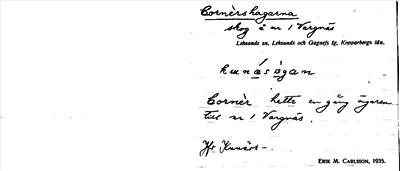 Cornèrshagarna
skog å nr 1 Vargnäs
Leksands sn, Leksands och Gagnefs tg, Kopparbergs län.
kų̈næ̀ságan
Cornèr hette en gång ägaren
till nr 1 Vargnäs.
Jfr Kunärs-.
ERIK M. CARLSSON, 1935.